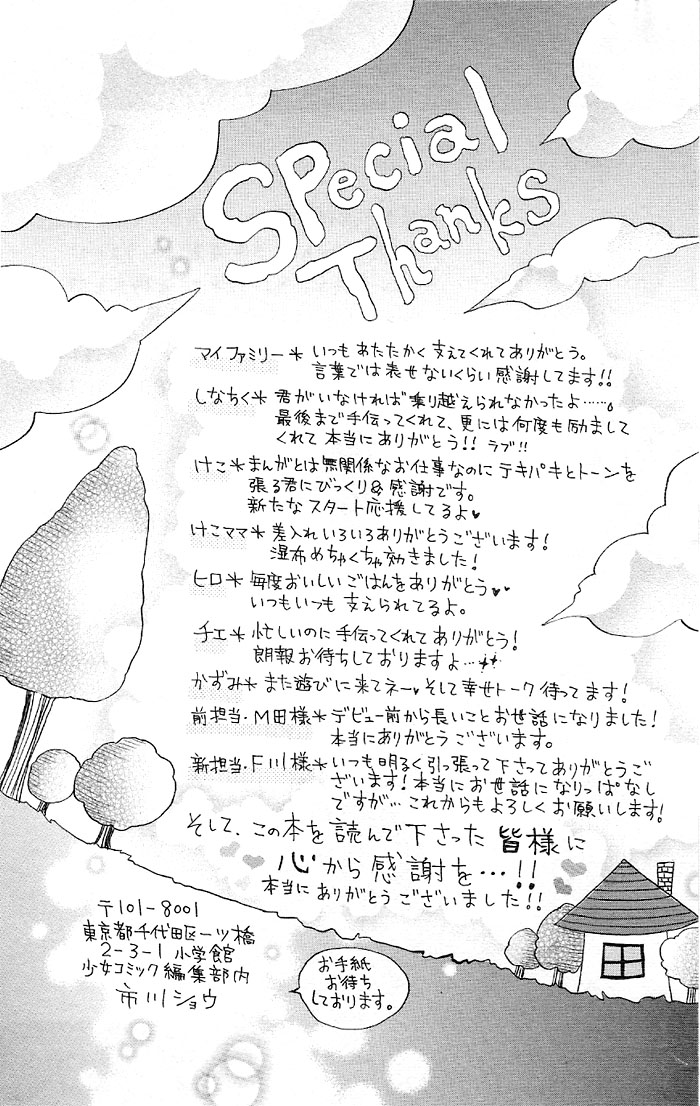 Special
Thanks
マイファミリー＊いつもあたたかく支えてくれてありがとう。
言葉では表せないくらい感謝してます!!
しなちく＊君がいなければ乗り越えられなかったよ……。
最後まで手伝ってくれて、更には何度も励まして
くれて本当にありがとう!! ラブ!!
けこ＊まんがとは無関係なお仕事なのにテキパキとトーンを
張る君にびっくり&感謝です。
新たなスタート応援してるよ♥
けこママ＊差入れいろいろありがとうございます!
湿布めちゃくちゃ効きました!
ヒロ＊毎度おいしいごはんをありがとう♥♥
いつもいつも支えられてるよ。
チエ＊忙しいのに手伝ってくれてありがとう!
朗報お待ちしておりますよ…
かずみ＊また遊びに来てネー♥そして幸せトーク待ってます!
前担当・M田様＊デビュー前から長いことお世話になりました!
本当にありがとうございます。
新担当・F川様＊いつも明るく引っ張って下さってありがとうご
ざいます!本当にお世話になりっぱなし
ですが…これからもよろしくお願いします!
そして、この本を読んで下さった皆様に
心から感謝を…!!
本当にありがとうございました!!
〒101-8001
東京都千代田区一ツ橋
2-3-1 小学館
少女コミック編集部内
市川ショウ
お手紙
お待ち
しております。